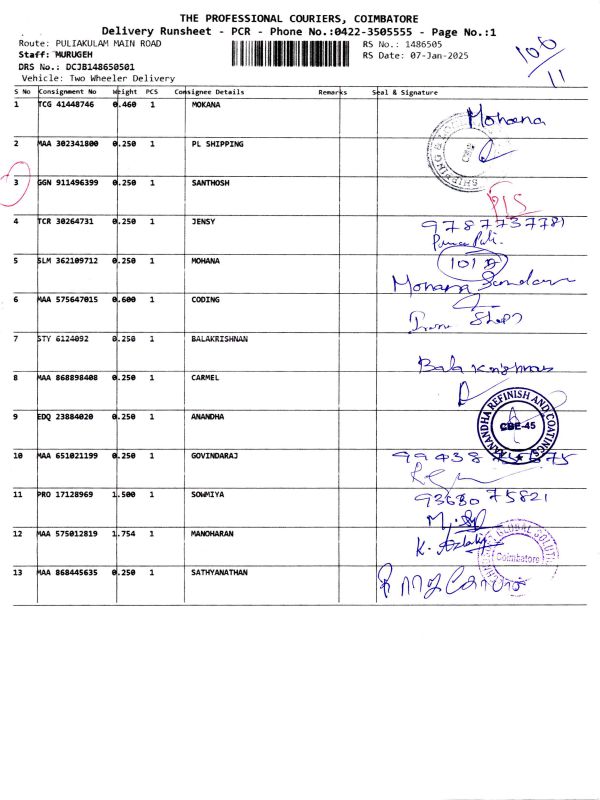 THE PROFESSIONAL COURIERS, COIMBATORE
Delivery Runsheet - PCR - Phone No.:0422-3505555 - Page No.:1
Route: PULIAKULAM MAIN ROAD RS No.: 1486505
Staff: MURUGEH RS Date: 07-Jan-2025
DRS No.: DCJB148650501
Vehicle: Two Wheeler Delivery
106/11
S No Consignment No Weight PCS Consignee Details Remarks Seal & Signature
1 TCG 41448746 0.460 1 MOKANA Mohana
2 MAA 302341800 0.250 1 PL SHIPPING
3 GGN 911496399 0.250 1 SANTHOSH
4 TCR 30264731 0.250 1 JENSY 9787737781
5 SLM 362109712 0.250 1 MOHANA Mohana
6 MAA 575647015 0.600 1 CODING
7 STY 6124092 0.250 1 BALAKRISHNAN
8 MAA 868898408 0.250 1 CARMEL
9 EDQ 23884020 0.250 1 ANANDHA ANANDHA REFINISH AND COATINGS CBE-45
10 MAA 651021199 0.250 1 GOVINDARAJ
11 PRO 17128969 1.500 1 SOWMIYA 9368075821
12 MAA 575012819 1.754 1 MANOHARAN Coimbatore
13 MAA 868445635 0.250 1 SATHYANATHAN